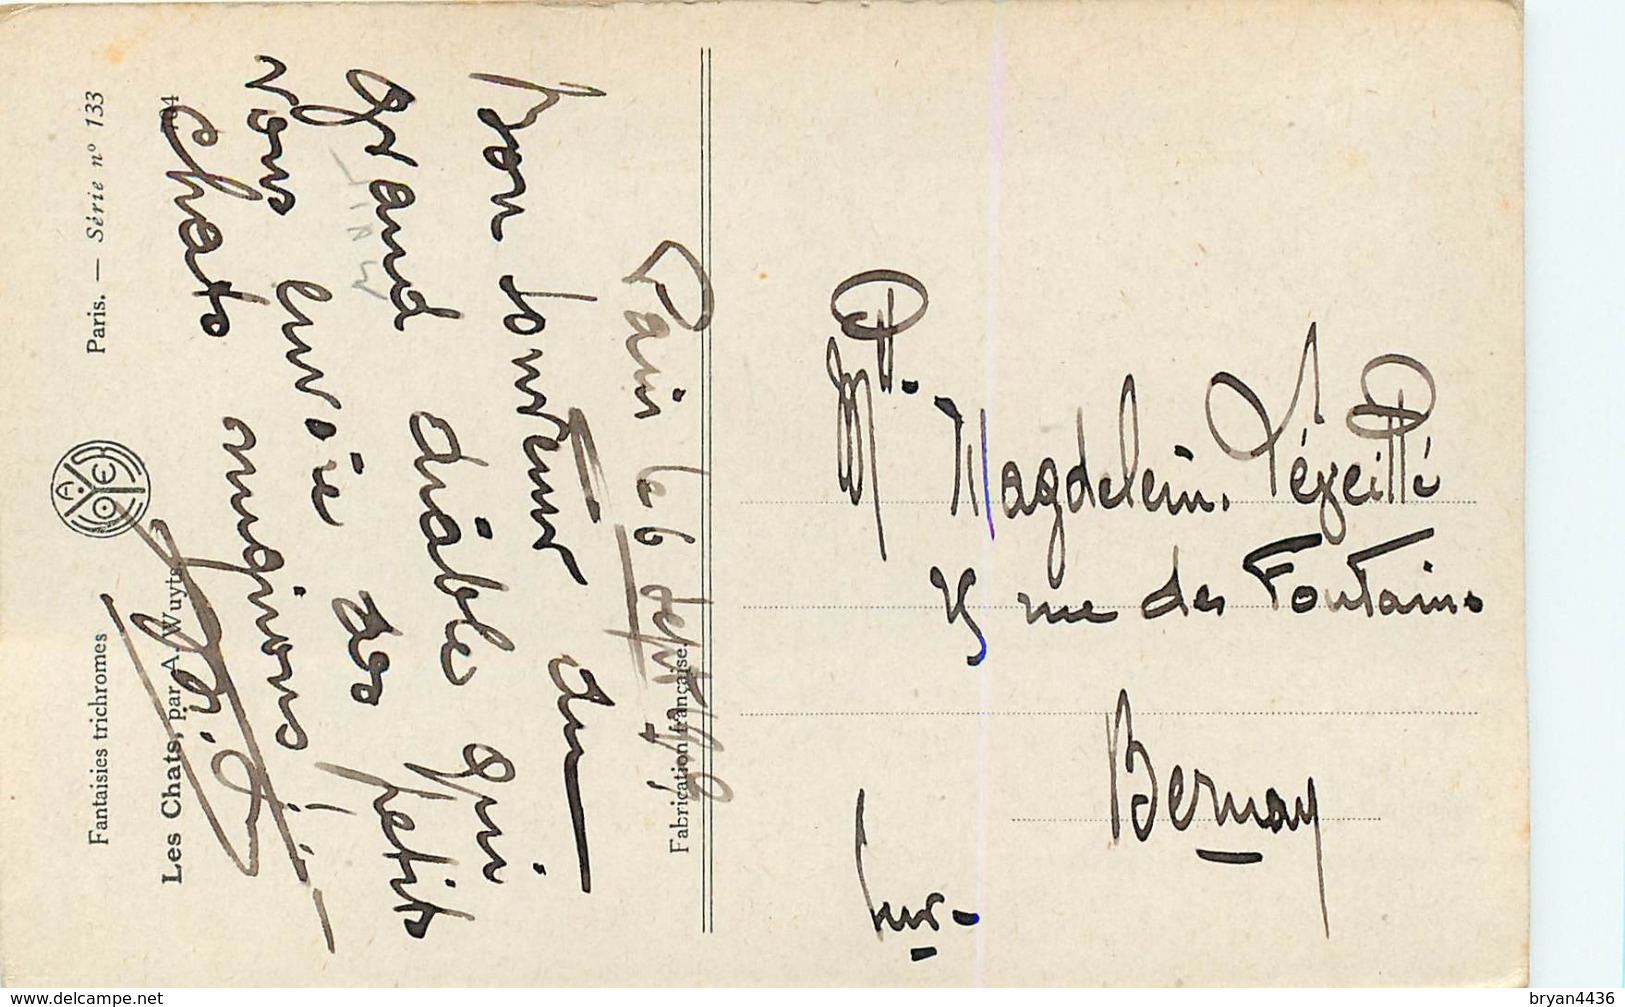 Paris le 6 sept
bon souvenir du
grand diable qui
vous envoie des petits
Chats mignons !
Fantaisies trichromes
Paris. — Série nº 133
Les Chats, par A. Wuyts
Fabrication française.
Mlle Magdelein.
rue des Fontaines
Bernay
Eure
www.delcampe.net
bryan4436